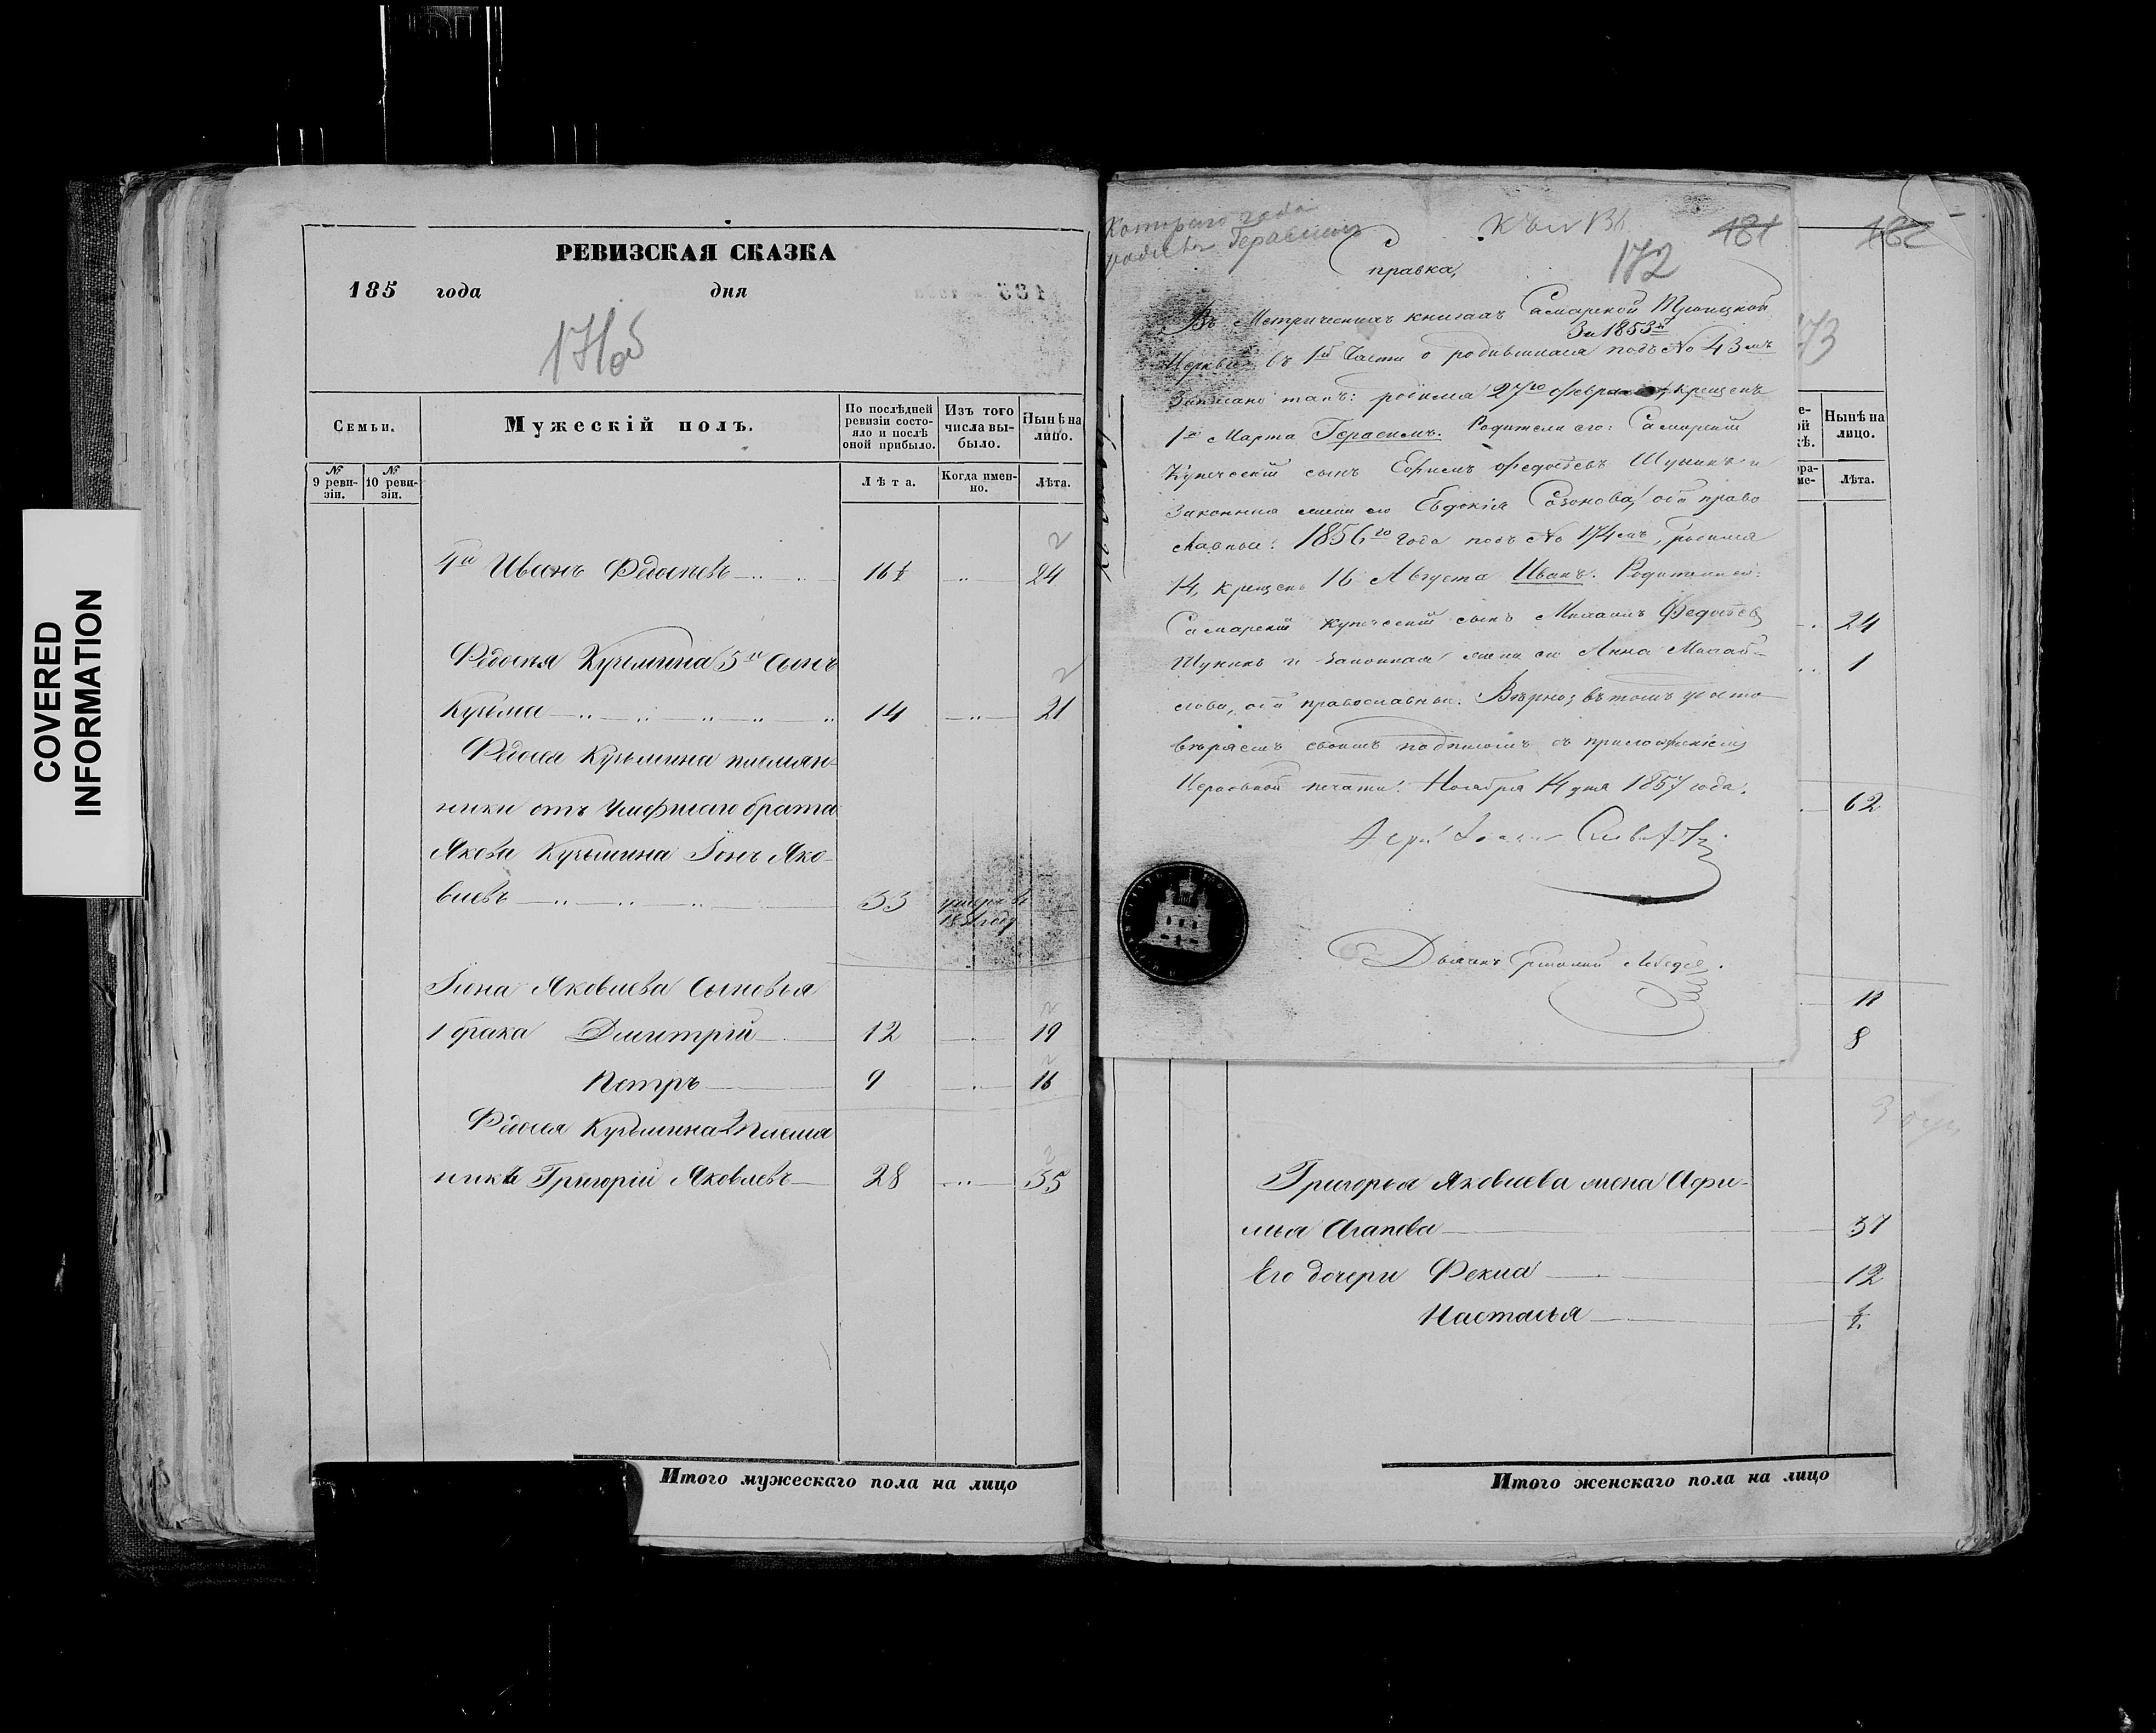 COVERED
INFORMATION
РЕВИЗСКАЯ СКАЗКА
185 года дня
171об
Семьи.
Мужескій полъ.
По послѣдней ревизіи состояло и послѣ оной прибыло.
Изъ того числа выбыло.
Нынѣ на лицо.
№ 9 ревизіи.
№ 10 ревизіи.
Лѣта.
Когда именно.
Лѣта.
2
4й Иванъ Федотовъ 16½ 24
Федота Кузьмина 5й сынъ
2
Кузьма 14 21
Федота Кузьмина племян-
ники отъ умершаго брата
Якова Кузьмина Іонъ Яко-
влевъ 33 умеръ въ
185 году
Іона Яковлева сыновья
2
1 брака Дмитрій 12 19
2
Петръ 9 16
Федота Кузьмина 2 племя
2
никъ Григорій Яковлевъ 28 35
Итого мужескаго пола на лицо
Котораго года
родился Герасимъ
181
172
Справка,
Въ Метрическихъ книгахъ Самарской Троицкой
За 1853й
Церкви въ 1й части о родившихся подъ № 43мъ
Записано такъ: родился 27го Февраля, крещенъ
1го Марта Герасимъ. Родители его: Самарскій
Купеческій сынъ Ефимъ Федотовъ Шукинъ и
Законная жена его Евдокія Сазонова, оба право
славные. 1856го года подъ № 174мъ, родился
14, крещенъ 16 Августа Иванъ. Родители его:
Самарскій купеческій сынъ Михаилъ Федотовъ
Шукинъ и законная жена его Анна Михай-
лова, оба православные. Вѣрно, въ томъ удосто
вѣряемъ своимъ подписомъ съ приложеніемъ
Церковной печати. Ноября 14 дня 1857 года.
Дьячекъ Лебедев
182
173
Нынѣ на лицо.
Лѣта.
24
1
62
8
Григорья Яковлева жена Афи-
мья Агапова 37
Его дочери Фекла 12
Настасья ½
Итого женскаго пола на лицо